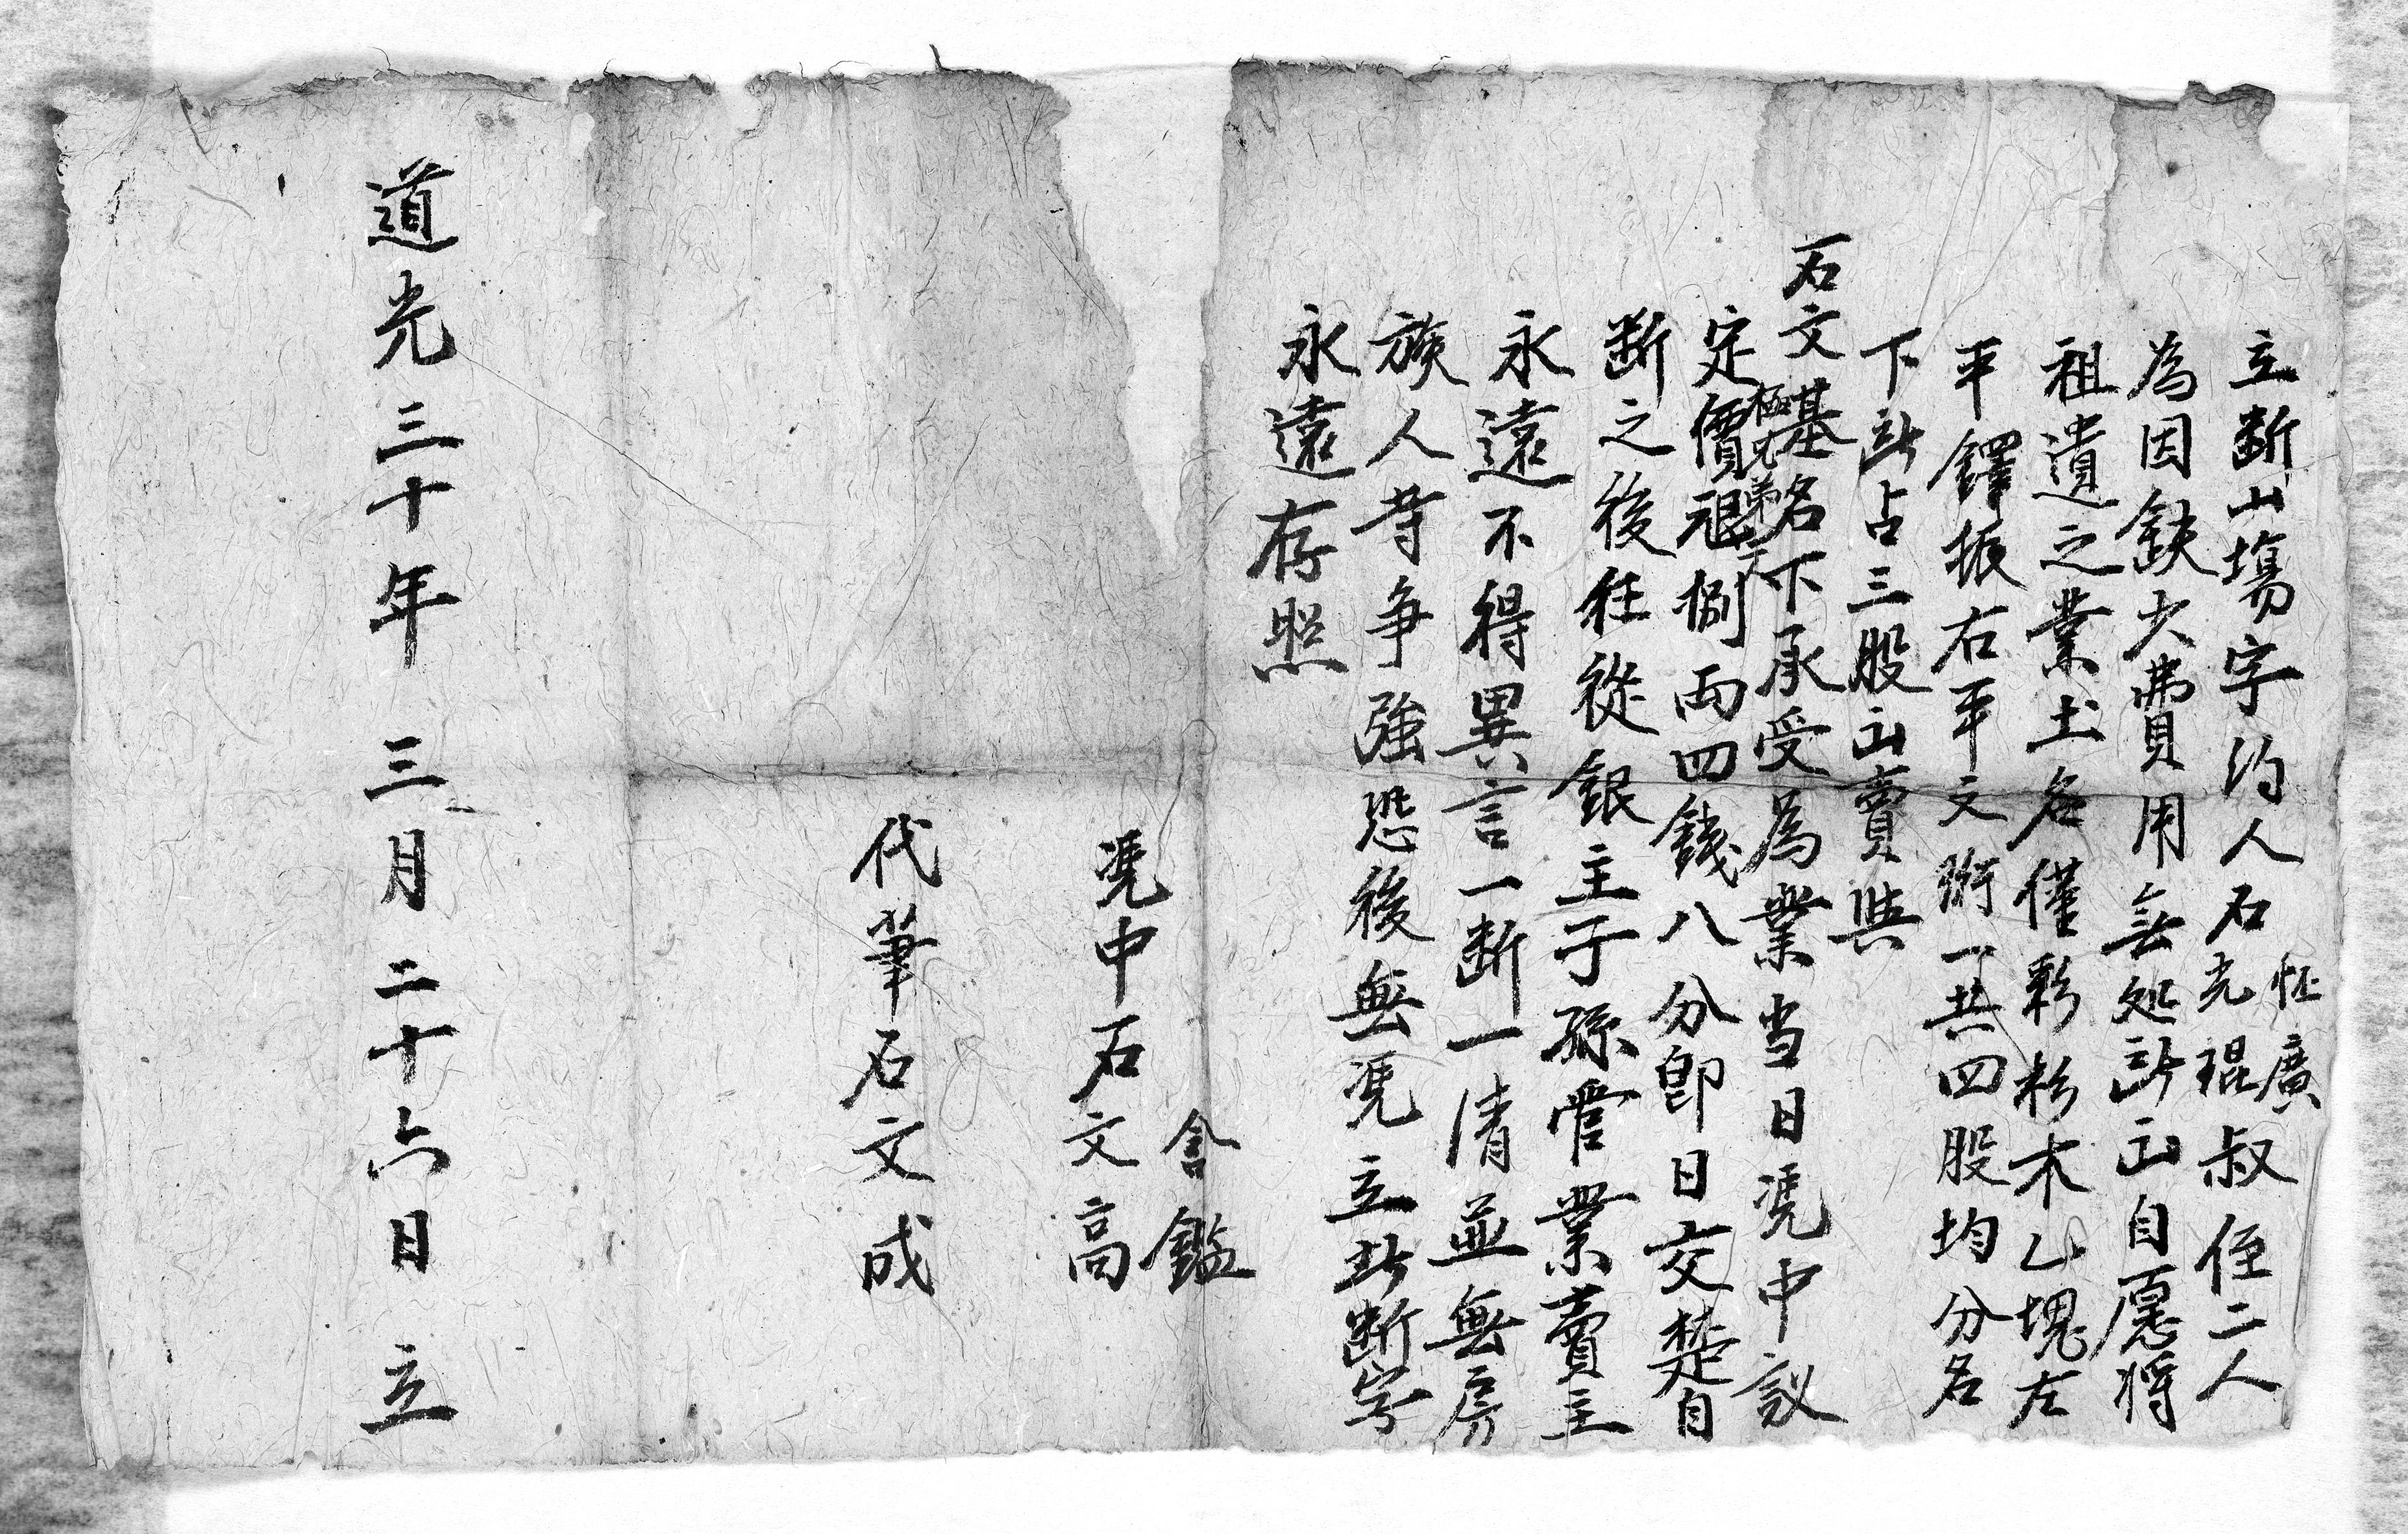 立断山塲字約人石光琨叔侄二人
怀廣
為因缺少費用無処訃山自愿將
祖遺之業土名僅彩杉木乙塊左
平鐸振右平文衛一共四股均分名
下訃占三股山賣與
石文基名下承受為業当日凭中議
極光弟
定價艰捌両四錢八分卽日交楚自
断之後任從銀主子孫管業賣主
永遠不得異言一断一清並無房
族人等争強恐後無凭立此断字
永遠存照
含鑑
凭中石文高
代筆石文成
道光三十年三月二十六日立